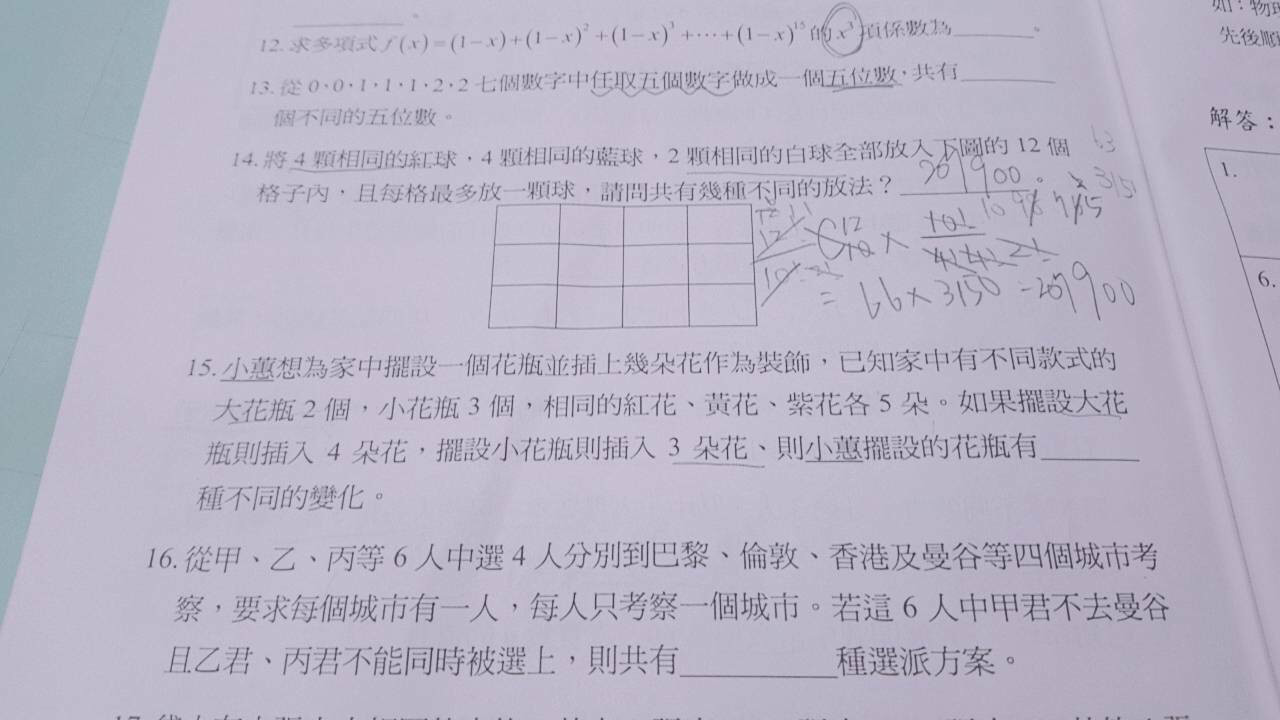 12. 求多項式 f(x)=(1-x)+(1-x)²+(1-x)³+⋯+(1-x)¹⁵ 的 x³ 項係數為______。
13. 從 0、0、1、1、1、2、2 七個數字中任取五個數字做成一個五位數,共有______
個不同的五位數。
14. 將 4 顆相同的紅球,4 顆相同的藍球,2 顆相同的白球全部放入下圖的 12 個
格子內,且每格最多放一顆球,請問共有幾種不同的放法?207900。
= 66×3150=207900
15. 小蕙想為家中擺設一個花瓶並插上幾朵花作為裝飾,已知家中有不同款式的
大花瓶 2 個,小花瓶 3 個,相同的紅花、黃花、紫花各 5 朵。如果擺設大花
瓶則插入 4 朵花,擺設小花瓶則插入 3 朵花、則小蕙擺設的花瓶有______
種不同的變化。
16. 從甲、乙、丙等 6 人中選 4 人分別到巴黎、倫敦、香港及曼谷等四個城市考
察,要求每個城市有一人,每人只考察一個城市。若這 6 人中甲君不去曼谷
且乙君、丙君不能同時被選上,則共有______種選派方案。
先後順
解答:
1.
6.